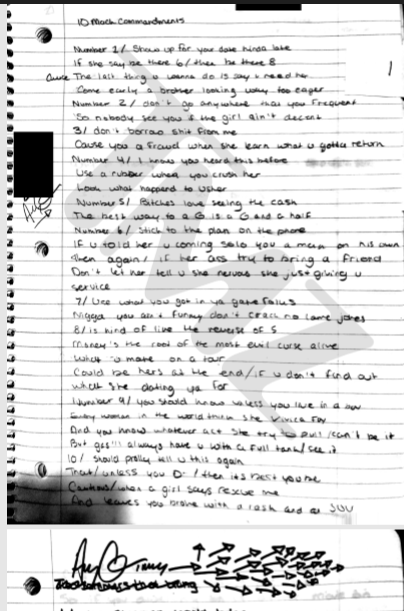 10 Mack Commandments
1
Number 1/ Show up for your date kinda late
If she say be there 6/ then be there 8
Cause The last thing u wanna do is say u need her
Come early a brother looking way too eager
Number 2/ don't go anywhere that you frequent
So nobody see you if the girl ain't decent
3/ don't borrow shit from me
Cause you a fraud when she learn what u gotta return
Number 4/ I know you heard this before
Use a rubber when you crush her
Look what happend to Usher
Number 5/ Bitches love seeing the cash
The best way to a G is a G and a half
Number 6/ Stick to the plan on the phone
If u told her u coming solo you a man on his own
Then again/ if her ass try to bring a friend
Don't let her tell u she nervous she just giving u
service
7/ Use what you got in ya gate folks
Nigga you ain't funny don't crack no lame jokes
8/ is kind of like the reverse of 5
Money's the root of the most evil curse alive
What u make on a tour
Could be hers at the end/ if u don't find out
what she dating ya for
Number 9/ you should know unless you live in a
Every woman in the world think she Vivica Fox
And you know whatever act she try to pull/ can't be it
But will always have u with a full tank/ see it
10/ should prolly tell u this again
unless you D- / then its best you be
Cautious/ when a girl says rescue me
And leaves you with a rash and an SUV